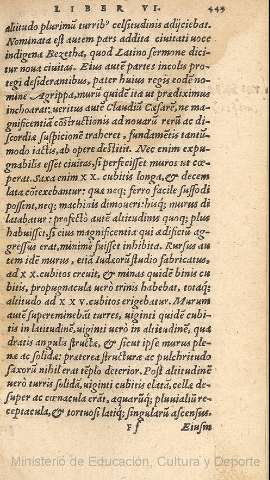 LIBER VI. 445
altitudo plurimũ turribꝰ celsitudinis adijciebat.
Nominata est autem pars addita ciuitati uoce
indigena Bezetha, quod Latino sermone dici
tur noua ciuitas. Eius autẽ partes incolis pro
tegi desiderantibus, pater huius regis eodẽ no
mine Agrippa, murũ quidẽ ita ut prædiximus
inchoarat: ueritus autẽ Claudiũ Cæsarẽ, ne ma
gnificentiã cõstructionis ad nouarũ rerũ ac di
scordiæ suspicionẽ traheret, fundamẽtis tantũ
modo iactis, ab opere destitit. Nec enim expu
gnabilis esset ciuitas, si perfecisset muros ut cœ
perat. Saxa enim xx. cubitis longa, & decem
lata cõtexebantur: quæ neq; ferro facile suffodi
possent, neq; machinis dimoueri: hisq; murus di
latabatur: profectò autẽ altitudinis quoq; plus
habuisset, si eius magnificentia qui ædificiũ ag-
gressus erat, minimè fuisset inhibita. Rursus au
tem idẽ murus, etiã Iudæorũ studio fabricatus,
ad xx. cubitos creuit, & minas quidẽ binis cu
bitis, propugnacula uerò trinis habebat, totaq;
altitudo ad xxv. cubitos erigebatur. Murum
autẽ supereminebãt turres, uiginti quidẽ cubi-
tis in latitudinẽ, uiginti uerò in altitudinẽ, qua
dratis angulis structæ, & sicut ipse murus ple-
næ ac solidæ: præterea structuræ ac pulchritudo
saxorũ nihil erat tẽplo deterior. Post altitudinẽ
uerò turris solidã, uiginti cubitis elatã, cellæ de
super ac cœnacula erãt, aquarũq; pluuialiũ re-
ceptacula, & tortuosi latiq; singularũ ascensus.
Ff Eiusm
Ministerio de Educación, Cultura y Deporte